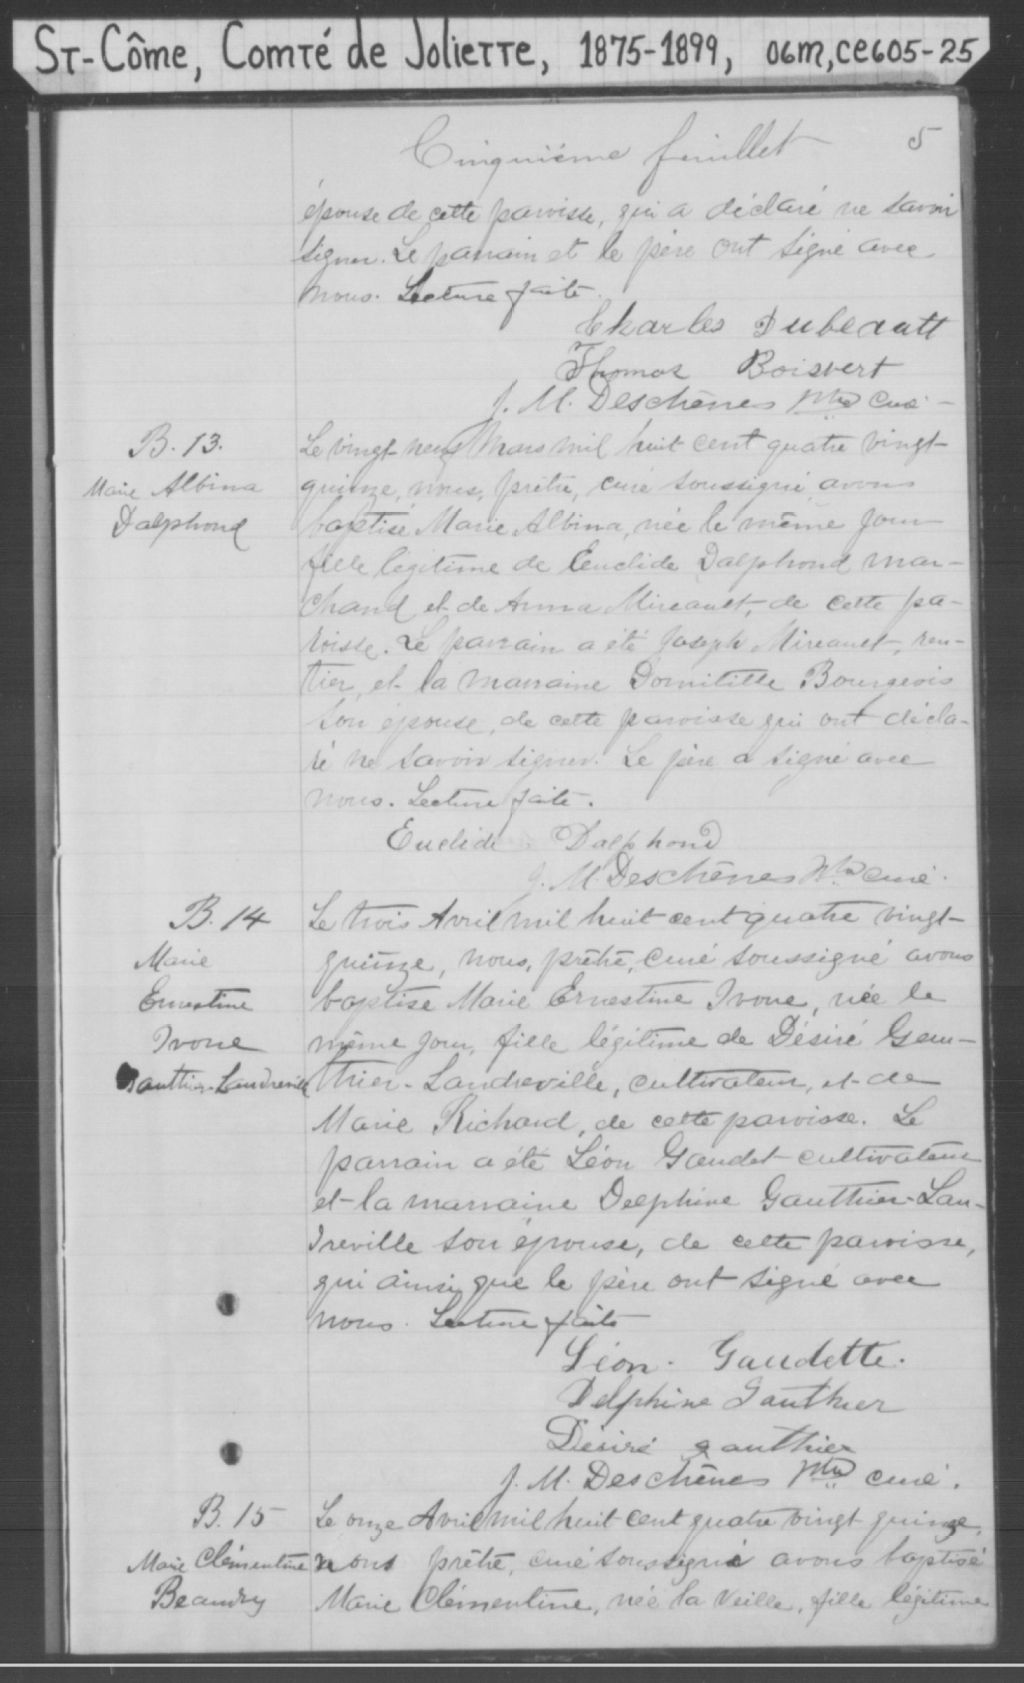 St-Côme, Comté de Joliette, 1875-1899, 06m, ce605-25
5
Cinquième feuillet
épouse de cette paroisse, qui a déclaré ne savoir
signer. Le parrain et le père ont signé avec
nous. Lecture faite.
Charles Dubeault
Thomas Boisvert
J. M. Deschênes Ptre curé
B. 13.
Marie Albina
Dalphond
Le vingt-neuf Mars mil huit cent quatre vingt-
quinze, nous, prêtre, curé soussigné avons
baptisé Marie Albina, née le même jour
fille légitime de Euclide Dalphond mar-
chand et de Anna Mireault, de cette pa-
roisse. Le parrain a été Joseph Mireault, ren-
tier, et la marraine Domitille Bourgeois
son épouse, de cette paroisse qui ont décla-
ré ne savoir signer. Le père a signé avec
nous. Lecture faite.
Euclide Dalphond
J. M. Deschênes Ptre curé.
B. 14
Marie
Ernestine
Ivone
Gauthier-Landreville
Le trois Avril mil huit cent quatre vingt-
quinze, nous, prêtre, curé soussigné avons
baptisé Marie Ernestine Ivone, née le
même jour, fille légitime de Désiré Gau-
thier-Landreville, cultivateur, et de
Marie Richard, de cette paroisse. Le
parrain a été Léon Gaudet cultivateur
et la marraine Delphine Gauthier-Lan-
dreville son épouse, de cette paroisse,
qui ainsi que le père ont signé avec
nous. Lecture faite
Léon. Gaudette.
Delphine Gauthier
Désiré gauthier
J. M. Deschênes Ptre curé.
B. 15
Marie Clémentine
Beaudry
Le onze Avril mil huit cent quatre vingt quinze,
nous prêtre, curé soussigné avons baptisé
Marie Clémentine, née la veille, fille légitime